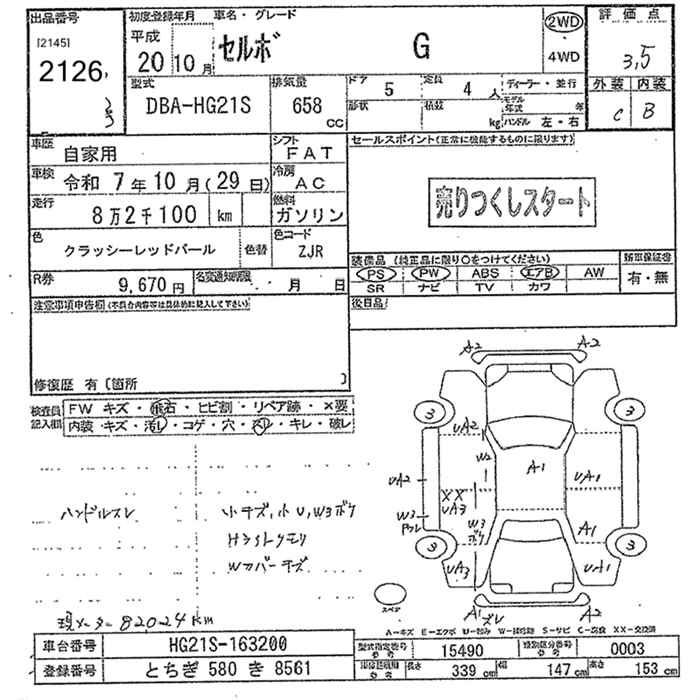 出品番号
[2145]
2126
初度登録年月
平成
20 10 月
車名・グレード
セルボ G
2WD
4WD
評価点
3,5
外装 内装
C B
型式
DBA-HG21S
排気量
658
CC
ドア
5
定員
4 人
形状
積数
kg
ディーラー・並行
モデル年式 年
ハンドル 左・右
車歴
自家用
シフト
FAT
車検
令和 7 年 10 月 (29 日)
冷房
AC
走行
8万2千100 km
燃料
ガソリン
色
クラッシーレッドパール
色替
色コード
ZJR
R券
9,670 円
名変通知期限
月 日
セールスポイント(正常に機能するものに限ります)
売りつくしスタート
装備品 (純正品に限り○をつけてください)
PS PW ABS エアB AW
SR ナビ TV カワ
新車保証書
有・無
後日品
注意事項申告欄(不具合内容等は具体的に記入して下さい)
修復歴 有 [箇所 ]
検査員記入欄
FW キズ・飛石・ヒビ割・リペア跡・×要
内装・キズ・汚レ・コゲ・穴・スレ・キレ・破レ
ハンドルスレ
小キズ,小U,W3ボケ
Hランレトクモリ
WカバーキズA2 A2
3 3
UA2
W2
A1
UA1
UA2
XX
UA3
W3
W3
ボケ
A1
3 3
UA3
UA1
スペア
A1
ズレ
A2
現メーター82024km
A−キズ E−エクボ U−凹み W−補修跡 S−サビ C−腐食 XX−交換済
車台番号
HG21S-163200
登録番号
とちぎ 580 き 8561
型式指定番号
参考
15490
類別区分番号
参考
0003
車検証記載
参考
長さ
339 cm
幅
147 cm
高さ
153 cm